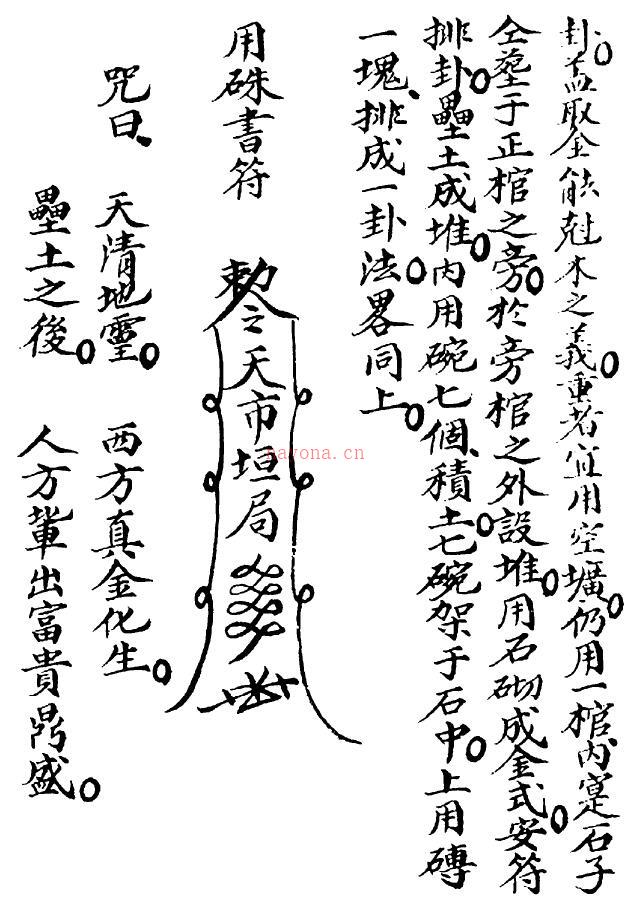 卦。盖取金能尅木之義。重者宜用空壙。仍用一棺。内寔石子
仝塟于正棺之旁。於旁棺之外設堆。用石砌成金式。安符
排卦。壘土成堆。内用碗七個。積土。七碗架于石中。上用磚
一塊。排成一卦。法畧同上。
用硃書符
勅令天市垣局
咒曰、 天清地靈。 西方真金化生。
壘土之後。 人方輩出富貴鼎盛。
nayona.cn